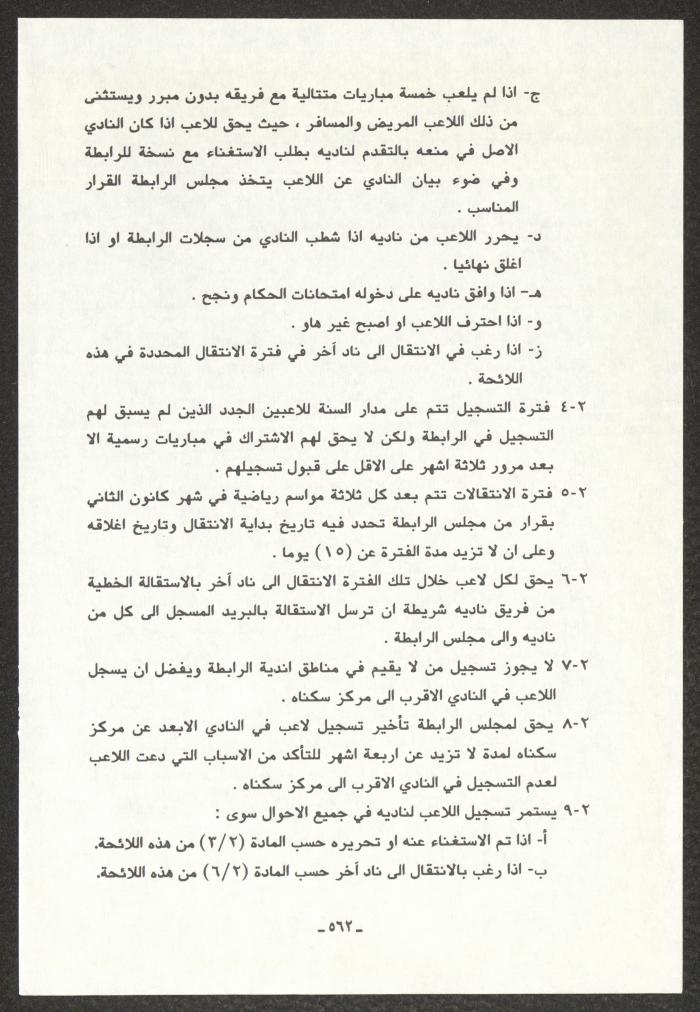 ج- اذا لم يلعب خمسة مباريات متتالية مع فريقه بدون مبرر ويستثنى
من ذلك اللاعب المريض والمسافر ، حيث يحق للاعب اذا كان النادي
الاصل في منعه بالتقدم لناديه بطلب الاستغناء مع نسخة للرابطة
وفي ضوء بيان النادي عن اللاعب يتخذ مجلس الرابطة القرار
المناسب .
د- يحرر اللاعب من ناديه اذا شطب النادي من سجلات الرابطة او اذا
اغلق نهائيا .
هـ- اذا وافق ناديه على دخوله امتحانات الحكام ونجح .
و- اذا احترف اللاعب او اصبح غير هاو .
ز- اذا رغب في الانتقال الى ناد آخر في فترة الانتقال المحددة في هذه
اللائحة .
٢-٤ فترة التسجيل تتم على مدار السنة للاعبين الجدد الذين لم يسبق لهم
التسجيل في الرابطة ولكن لا يحق لهم الاشتراك في مباريات رسمية الا
بعد مرور ثلاثة اشهر على الاقل على قبول تسجيلهم .
٢-٥ فترة الانتقالات تتم بعد كل ثلاثة مواسم رياضية في شهر كانون الثاني
بقرار من مجلس الرابطة تحدد فيه تاريخ بداية الانتقال وتاريخ اغلاقه
وعلى ان لا تزيد مدة الفترة عن (١٥) يوما .
٢-٦ يحق لكل لاعب خلال تلك الفترة الانتقال الى ناد آخر بالاستقالة الخطية
من فريق ناديه شريطة ان ترسل الاستقالة بالبريد المسجل الى كل من
ناديه والى مجلس الرابطة .
٢-٧ لا يجوز تسجيل من لا يقيم في مناطق اندية الرابطة ويفضل ان يسجل
اللاعب في النادي الاقرب الى مركز سكناه .
٢-٨ يحق لمجلس الرابطة تأخير تسجيل لاعب في النادي الابعد عن مركز
سكناه لمدة لا تزيد عن اربعة اشهر للتأكد من الاسباب التي دعت اللاعب
لعدم التسجيل في النادي الاقرب الى مركز سكناه .
٢-٩ يستمر تسجيل اللاعب لناديه في جميع الاحوال سوى :
أ- اذا تم الاستغناء عنه او تحريره حسب المادة (٣/٢) من هذه اللائحة.
ب- اذا رغب بالانتقال الى ناد آخر حسب المادة (٦/٢) من هذه اللائحة.
ـ ٥٦٢ ـ